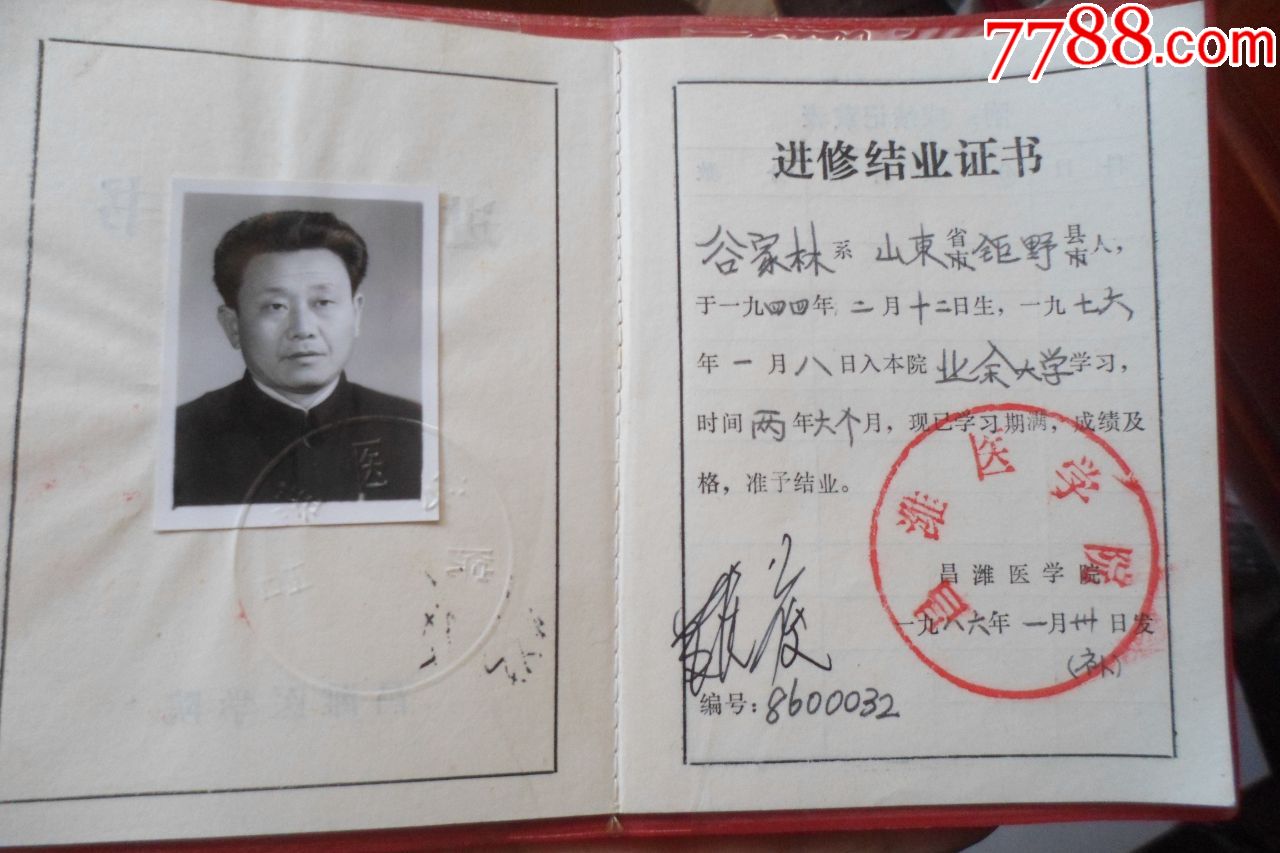 7788.com
进修结业证书
谷家林系 山东省市 钜野县市人，
于一九四四年 二月十二日生，一九七六
年 一月八日入本院 业余大学学习，
时间 两年六个月，现已学习期满，成绩及
格，准予结业。
昌潍医学院
昌潍医学院
一九八六年 一月卅日发
(补)
编号：8600032